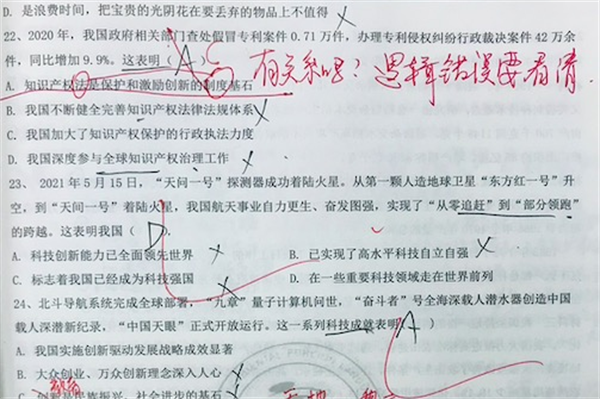 D. 是浪费时间，把宝贵的光阴花在要丢弃的物品上不值得 X
22、2020 年，我国政府相关部门查处假冒专利案件 0.71 万件，办理专利侵权纠纷行政裁决案件 42 万余
件，同比增用 9.9%。这表明（A）
有关系吗？逻辑错误要看清
A. 知识产权法是保护和激励创新的制度基石
B. 我国不断健全完善知识产权法律法规体系 X
C. 我国加大了知识产权保护的行政执法力度
D. 我国深度参与全球知识产权治理工作 X
23、2021 年 5 月 15 日，“天问一号”探测器成功着陆火星。从第一颗人造地球卫星“东方红一号”升
空，到“天问一号”着陆火星，我国航天事业自力更生、奋发图强，实现了“从零追赶”到“部分领跑”
的跨越。这表明我国（D）
A. 科技创新能力已全面领先世界 X
B. 已实现了高水平科技自立自强 X
C. 标志着我国已经成为科技强国 X
D. 在一些重要科技领域走在世界前列
24、北斗导航系统完成全球部署，“九章”量子计算机问世，“奋斗者”号全海深载人潜水器创造中国
载人深潜新纪录，“中国天眼”正式开放运行。这一系列科技成就表明（A）
A. 我国实施创新驱动发展战略成效显著
B. 大众创业、万众创新理念深入人心 X
教育
C. 创新是民族振兴、社会进步的基石